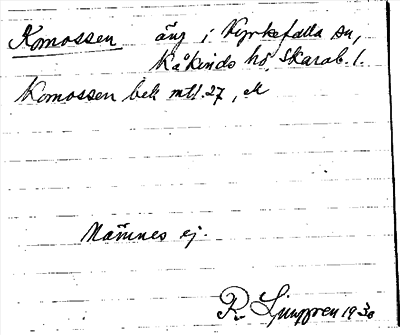 Komossen äng i Kyrkefalla sn,
Kåkinds hd, Skarab. l.
Komossen bek mtl. 27, ek
Nämnes ej.
R. Ljunggren 1930